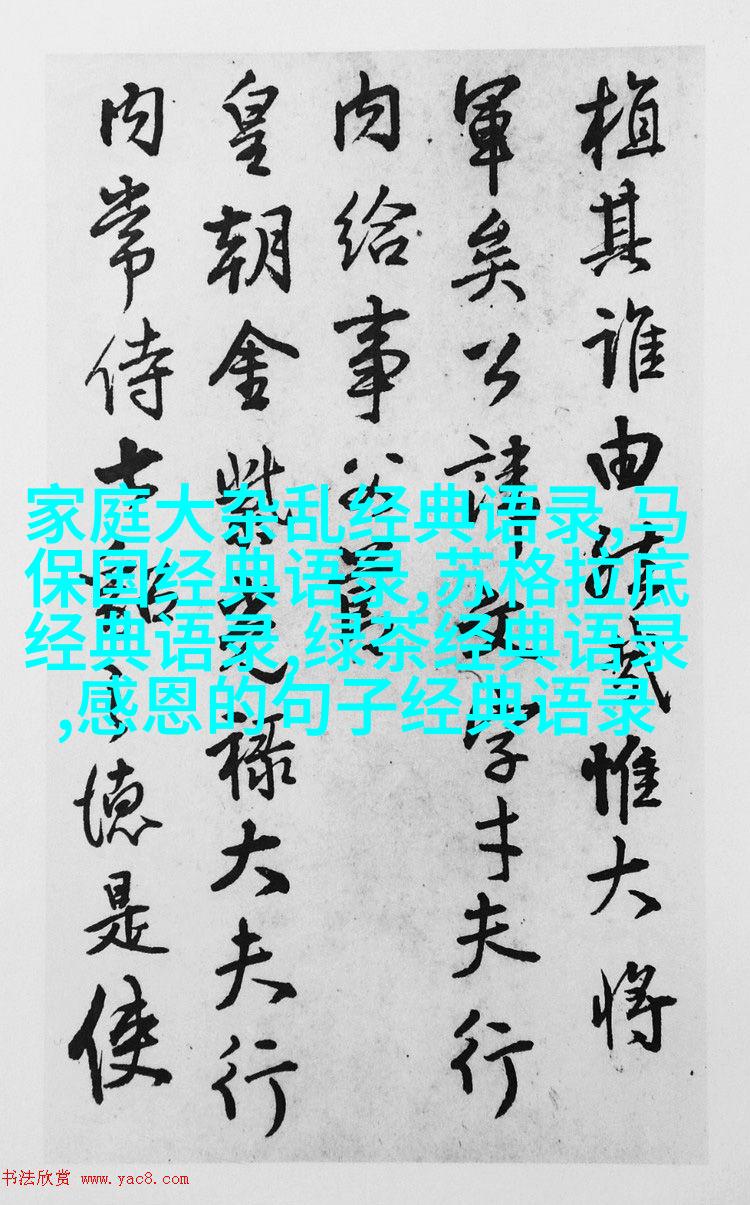 植其誰由惟大將
軍矣公諱文字才夫行
內給事父
皇朝金紫光祿大夫行
內常侍德是使
家庭大杂乱经典语录,马
保国经典语录,苏格拉底
经典语录,绿茶经典语录
,感恩的句子经典语录
书法欣赏 www.yac8.com